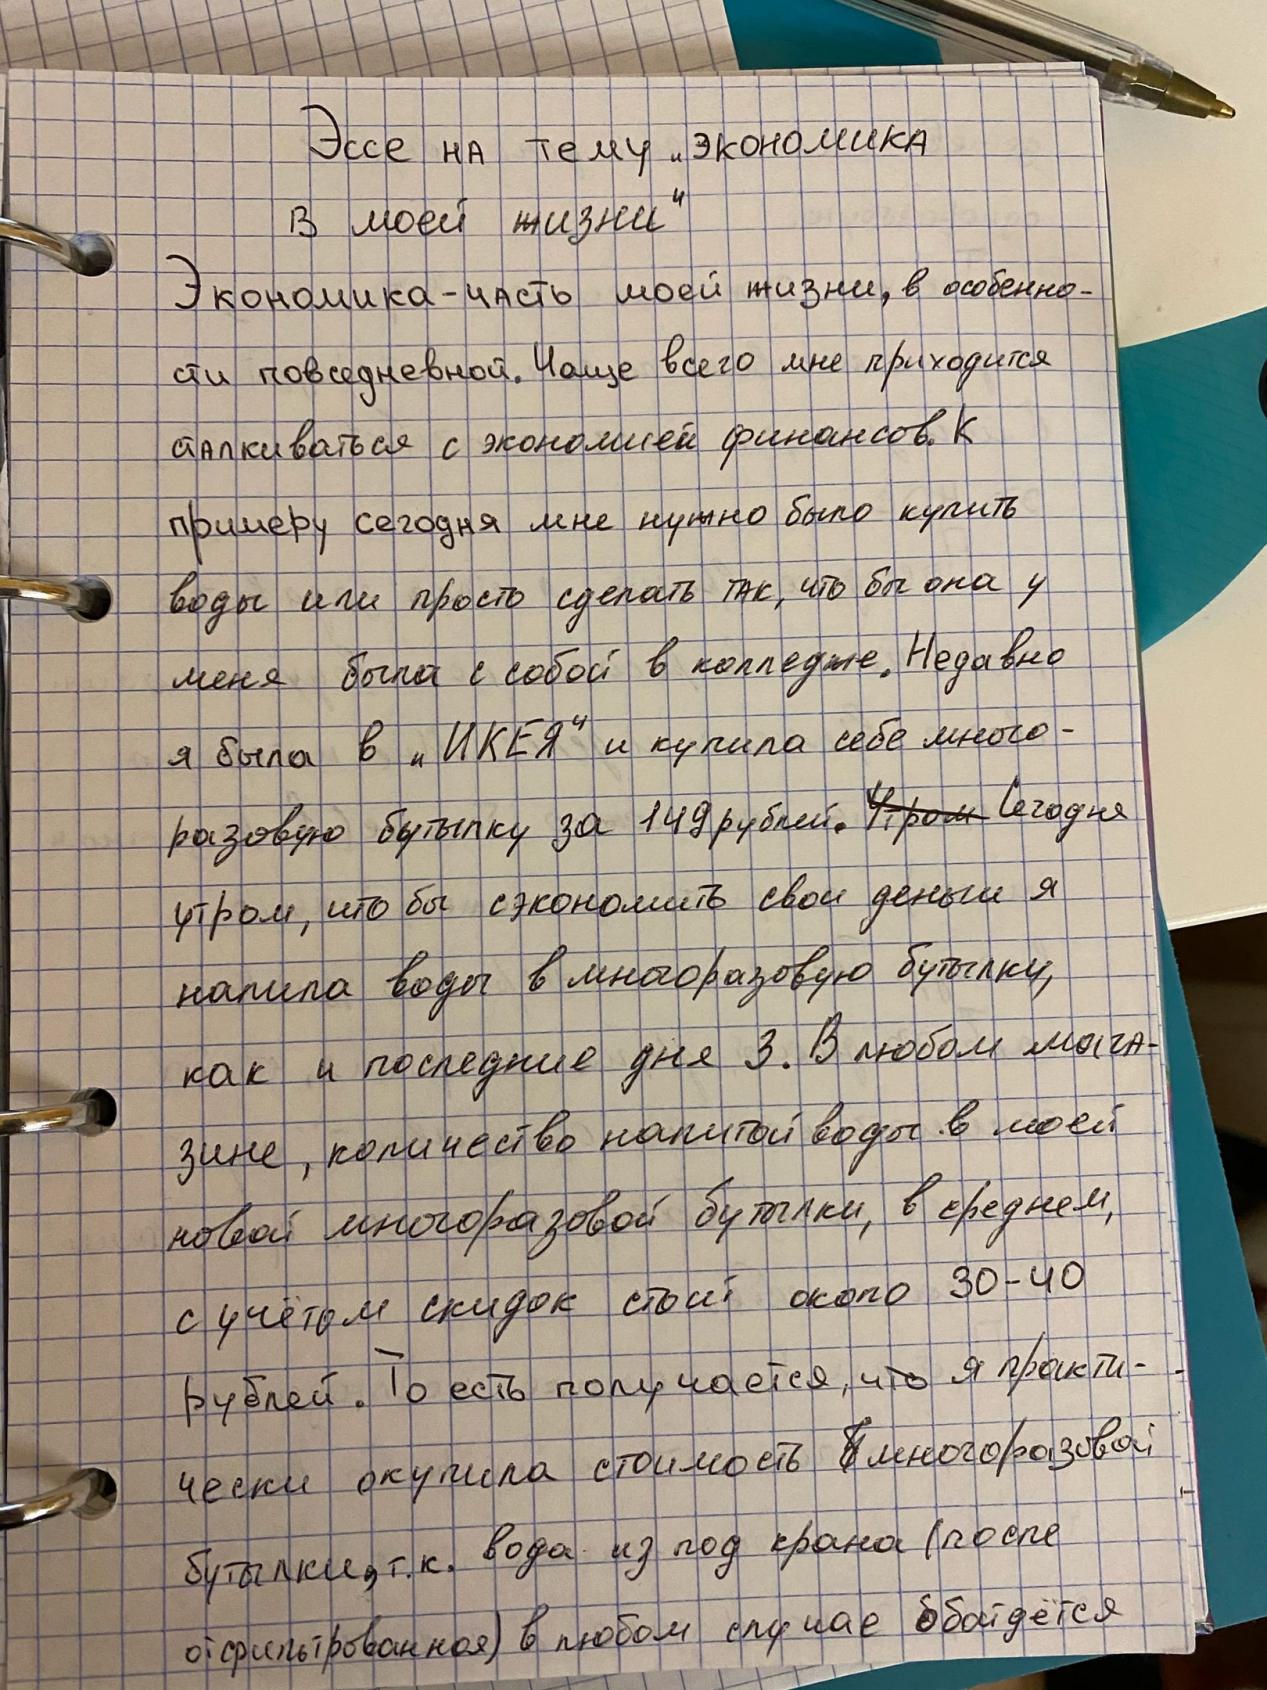 Эссе на тему „экономика
в моей жизни"
Экономика-часть моей жизни, в особенно-
сти повседневной. Чаще всего мне приходится
сталкиваться с экономией финансов. К
примеру сегодня мне нужно было купить
воды или просто сделать так, что бы она у
меня была с собой в колледже. Недавно
я была в „ИКЕЯ" и купила себе много-
разовую бутылку за 149 рублей. Утром Сегодня
утром, что бы сэкономить свои деньги я
налила воды в многоразовую бутылку,
как и последние дня 3. В любом мага-
зине, количество налитой воды в моей
новой многоразовой бутылки, в среднем,
с учётом скидок стоит около 30-40
рублей. То есть получается, что я практи-
чески окупила стоимость многоразовой
бутылки, т.к. вода из под крана (после
отфильтрованная) в любом случае обойдётся